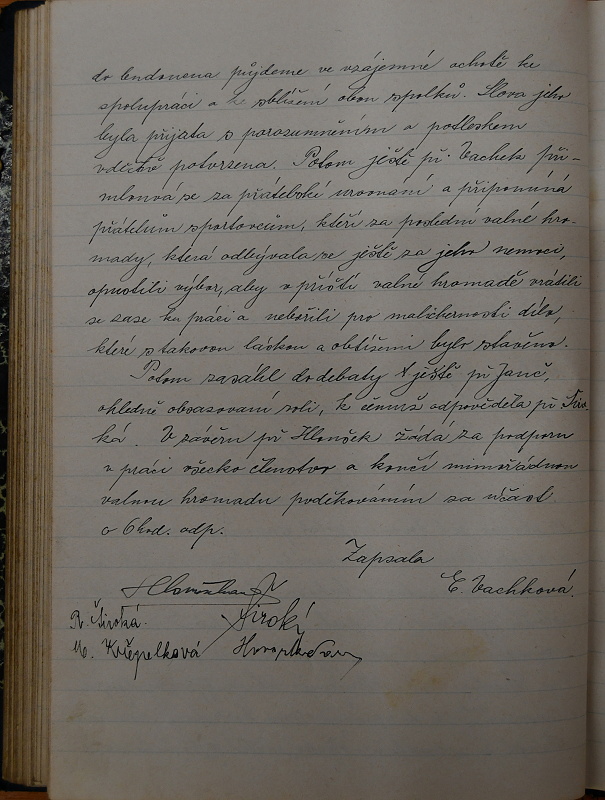 do budoucna půjdeme ve vzájemné ochotě ke
spolupráci a k sblížení obou spolků. Slova jeho
byla přijata s porozumněním a potleskem
vděčně potvrzena. Potom ještě př. Vachek při-
mlouvá se za přátelské urovnání a připomíná
přátelům sportovcům, kteří za poslední valné hro-
mady, která odbývala se ještě za jeho nemoci,
opustili výbor, aby v příští valné hromadě vrátili
se zase ku práci a nebořili pro malichernosti dílo,
kteří s takovou láskou a obtížemi bylo stavěno.
Potom zasáhl do debaty ještě př. Janč,
ohledně obsazovaní rolí, k čemuž odpověděla př. Širo-
ká. V závěru př. Hloušek žádá za podporu
v práci všecko členstvo a končí mimořádnou
valnou hromadu poděkováním za účast
o 6 hod. odp.
Zapsala
E. Vachková.
R. Široká. Široký
M. Křepelková